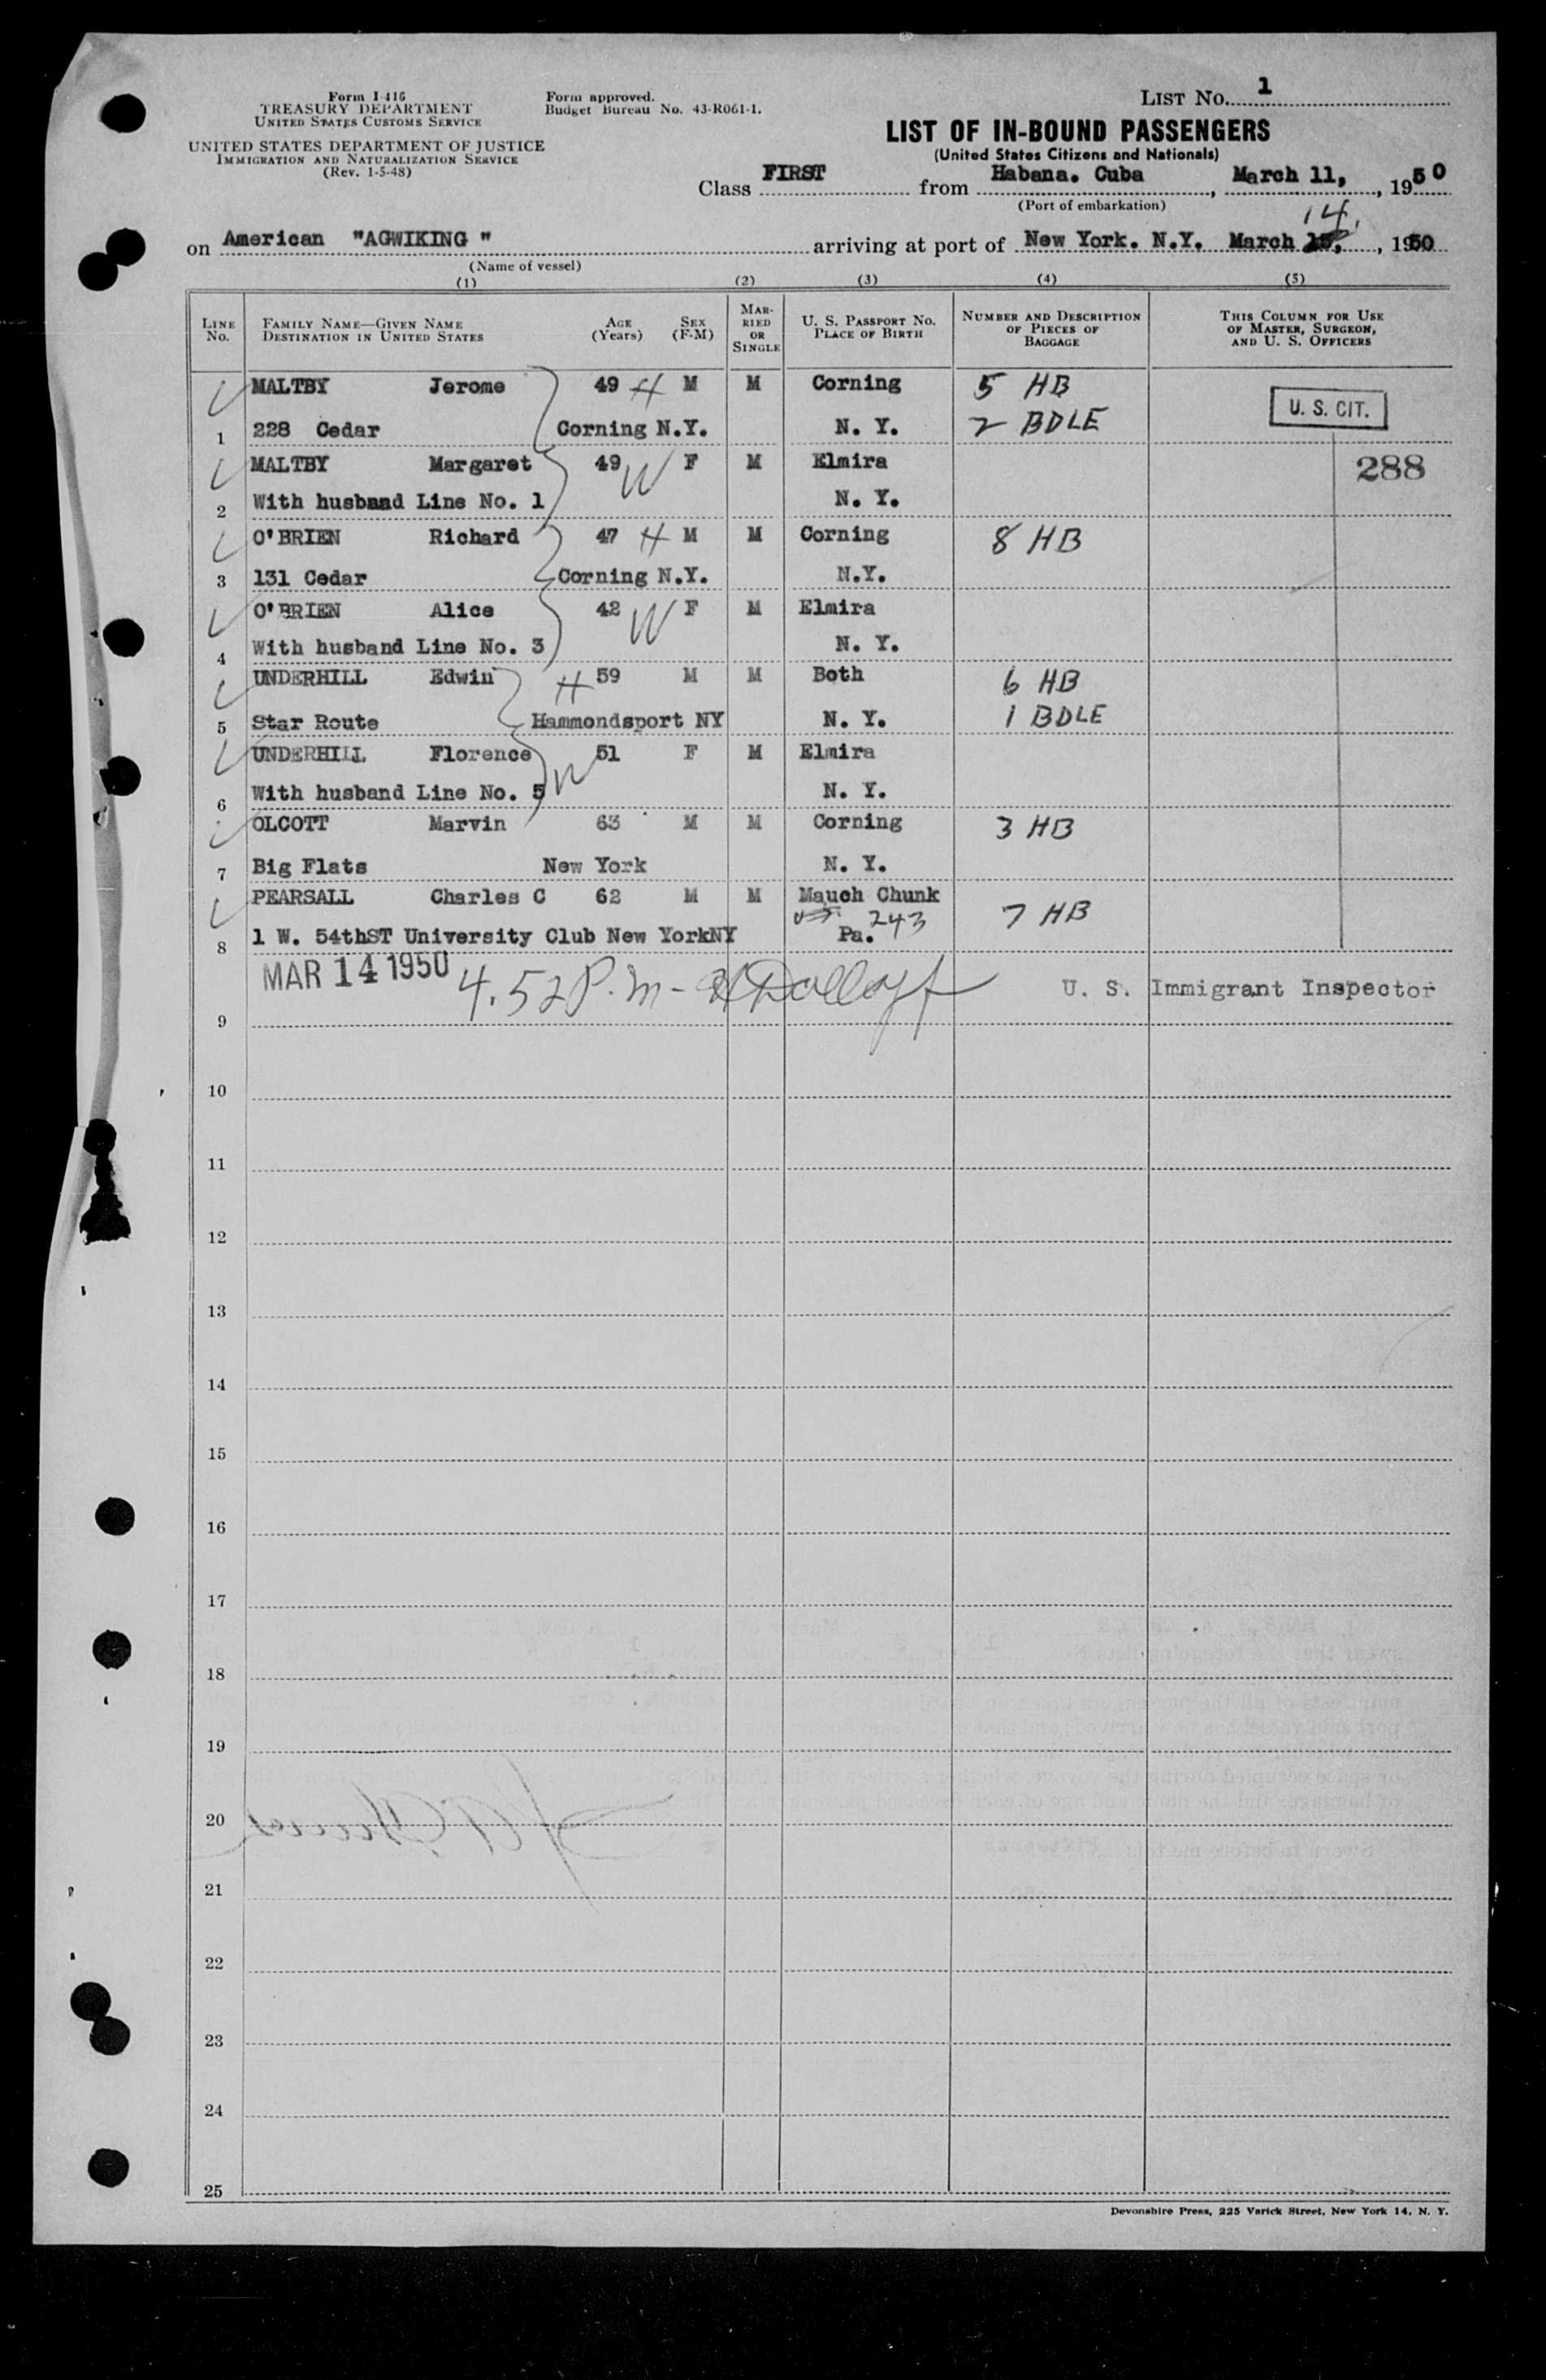 Form I 416
TREASURY DEPARTMENT
UNITED STATES CUSTOMS SERVICE
UNITED STATES DEPARTMENT OF JUSTICE
IMMIGRATION AND NATURALIZATION SERVICE
(Rev. 1-5-48)
Form approved.
Budget Bureau No. 43-R061-1.
LIST NO. 1
LIST OF IN-BOUND PASSENGERS
(United States Citizens and Nationals)
Class FIRST from Habana. Cuba, March 11, 1950
(Port of embarkation)
14,
on American "AGWIKING " arriving at port of New York. N.Y. March 15, 1950
(Name of vessel)
(1) (2) (3) (4) (5)
LINE NO. FAMILY NAME—GIVEN NAME DESTINATION IN UNITED STATES AGE (Years) SEX (F-M) MARRIED OR SINGLE U. S. PASSPORT NO. PLACE OF BIRTH NUMBER AND DESCRIPTION OF PIECES OF BAGGAGE THIS COLUMN FOR USE OF MASTER, SURGEON, AND U. S. OFFICERS
MALTBY Jerome 49 H M M Corning 5 HB
U. S. CIT.
1 228 Cedar Corning N.Y. N. Y. 2 BDLE
MALTBY Margaret 49 W F M Elmira 288
2 With husband Line No. 1 N. Y.
O'BRIEN Richard 47 H M M Corning 8 HB
3 131 Cedar Corning N.Y. N.Y.
O'BRIEN Alice 42 W F M Elmira
4 With husband Line No. 3 N. Y.
UNDERHILL Edwin H 59 M M Both 6 HB
5 Star Route Hammondsport NY N. Y. 1 BDLE
UNDERHILL Florence W 51 F M Elmira
6 With husband Line No. 5 N. Y.
OLCOTT Marvin 63 M M Corning 3 HB
7 Big Flats New York N. Y.
PEARSALL Charles C 62 M M Mauch Chunk 7 HB
243
8 1 W. 54thST University Club New YorkNY Pa.
MAR 14 1950 4.52 P.m - U. S. Immigrant Inspector
9
10
11
12
13
14
15
16
17
18
19
20
21
22
23
24
25
Devonshire Press, 225 Varick Street, New York 14, N. Y.